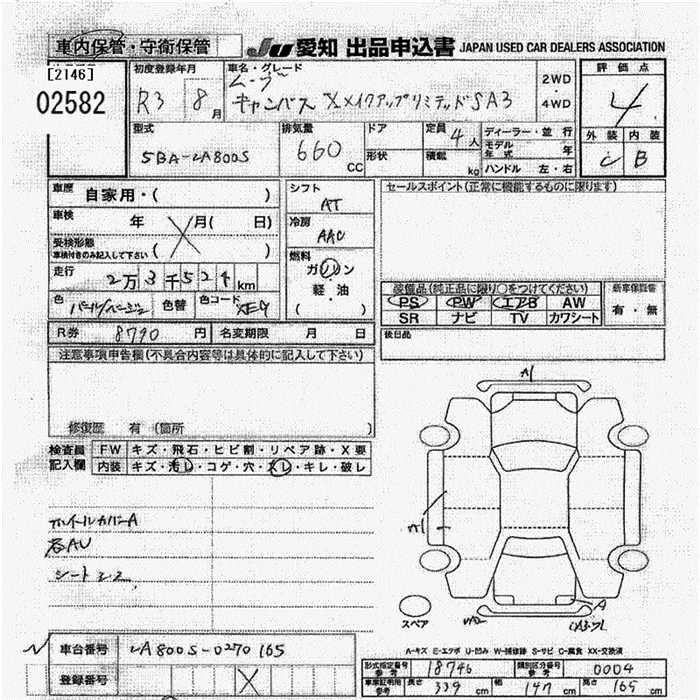 車内保管・守衛保管
JU 愛知 出品申込書 JAPAN USED CAR DEALERS ASSOCIATION
[2146]
02582
初度登録年月
R3 8月
車名・グレード
ムーヴ
キャンバス XメイクアップリミテッドSA3
2WD
4WD
評価点
4
外装 内装
C B
型式
5BA-LA800S
排気量
660 CC
ドア
形状
定員 4人
積載 kg
ディーラー・並行
モデル年式 年
ハンドル 左・右
車歴 自家用・( )
車検 年 月( 日)
受検形態
車検付きのみ記入して下さい ( )
走行 2万3千524km
色 パール/ベージュ 色替 色コード XE9
シフト
AT
冷房
AAC
燃料
ガソリン
軽・油
( )
セールスポイント(正常に機能するものに限ります)
装備品(純正品に限り○をつけてください)
PS PW エアB AW
SR ナビ TV カワシート
新車保証書
有・無
R券 8790円 名変期限 月 日
後日品
注意事項申告欄(不具合内容等は具体的に記入して下さい)
修復歴 有(箇所 )
検査員記入欄
FW キズ・飛石・ヒビ割・リペア跡・X要
内装 キズ・汚レ・コゲ・穴・スレ・キレ・破レ
ホイールカバーA
各AU
シートヨゴレ
A1
A1
A
UA2
スペア
A-キズ E-エクボ U-凹み W-補修跡 S-サビ C-腐食 XX-交換済
車台番号 LA800S-0270165
登録番号 X
形式指定番号参考 18746 類別区分番号参考 0004
車庫証明用参考 長さ 339cm 幅 147cm 高さ 165cm